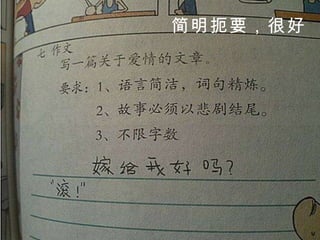 简明扼要，很好
七 作文
写一篇关于爱情的文章。
要求：1、语言简洁，词句精炼。
2、故事必须以悲剧结尾。
3、不限字数
嫁给我好吗？
“滚！”